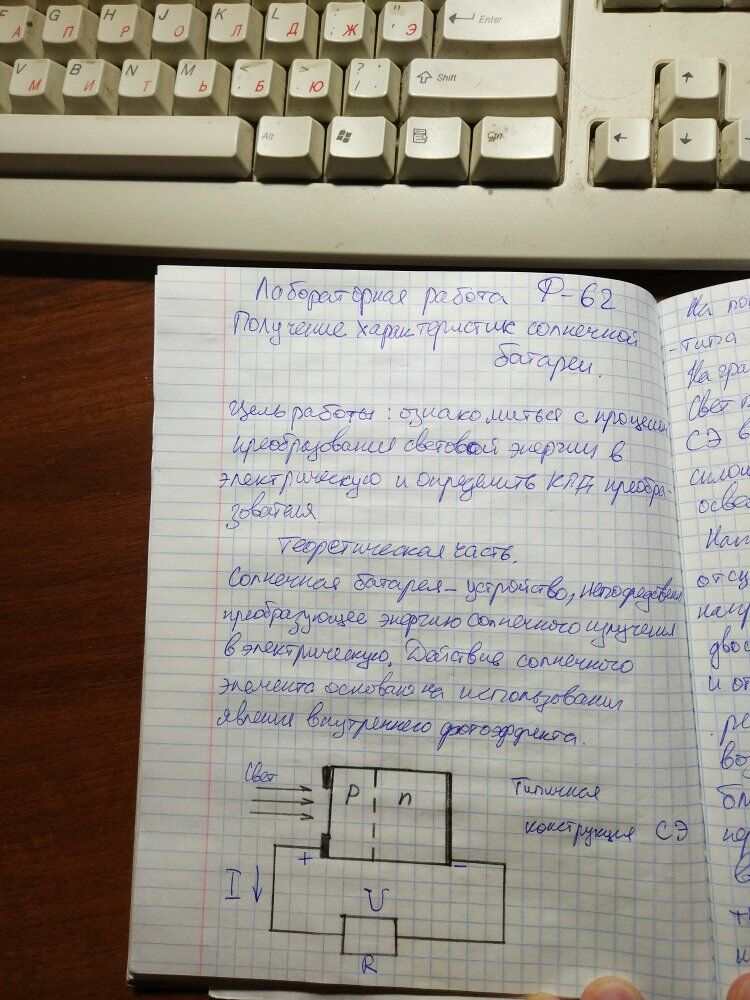 F А G П H Р J О K Л L Д : ; Ж " ' Э Enter
V М B И N Т M Ь < , Б > . Ю ? / . Shift
Alt Ctrl
Лабораторная работа Ф-62
Получение характеристик солнечной
батареи.
Цель работы: ознакомиться с процессом
преобразования световой энергии в
электрическую и определить КПД преобра-
зователя.
Теоретическая часть.
Солнечная батарея – устройство, непосредственно
преобразующее энергию солнечного излучения
в электрическую. Действие солнечного
элемента основано на использовании
явления внутреннего фотоэффекта.
Свет
p n
Типичная
конструкция СЭ
+ –
I
U
R
На по
-типа
На гра
Свет п
СЭ в
силой
осве
Нап
отсу
напр
двой
и от